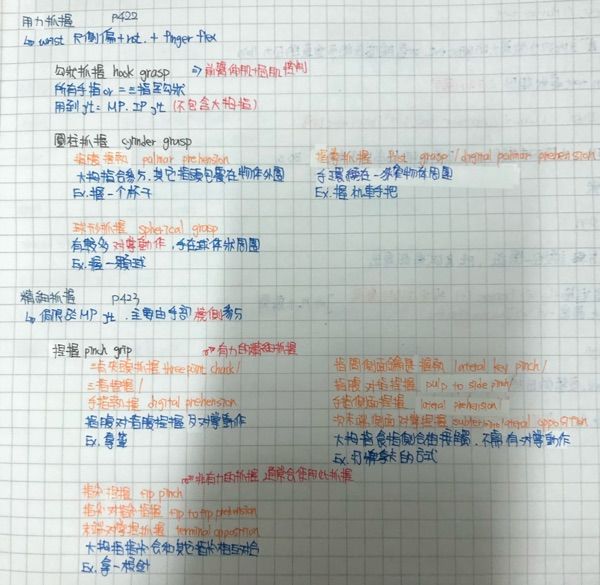 用力抓握 p422
↳ wrist 尺側偏+rot. + finger flex
勾狀抓握 hook grasp ⇒ 前臂伸肌+屈肌控制
所有手指 or 二三指呈勾狀
用到 jt = MP. IP jt (不包含大拇指)
圓柱抓握 cylinder grasp
指腹握執 palmar prehension
大拇指會參與. 其它指頭包覆在物体外圍
Ex. 握一個杯子
fist grasp / digital palmar prehension
手環繞在一狹窄物体周圍
Ex. 握机車手把
球形抓握 spherical grasp
有較多對掌動作, 手在球体狀周圍
Ex. 握一顆球
精細抓握 p423
↳ 侷限於MP jt. 主要由手部橈側參与
捏握 pinch grip
⇒ 有力的精細抓握
三点夾頭抓握 three point chuck /
三指捏握 /
手指執握 digital prehension
指腹对指腹捏握及对掌動作
Ex. 拿筆
握執 lateral key pinch /
指腹对指捏握 pulp to side pinch /
手指側面捏握 lateral prehension /
次末端側面对掌捏握 subterminolateral opposition
大拇指食指側会相接觸. 不需有对掌動作
Ex. 打牌拿卡的方式
⇒ 非有力的抓握, 通常会使用此抓握
指尖捏握 tip pinch
指尖对指尖捏握 tip to tip prehension
末端对掌捏抓握 terminal opposition
大拇指指尖会和其它指尖相互对合
Ex. 拿一根針